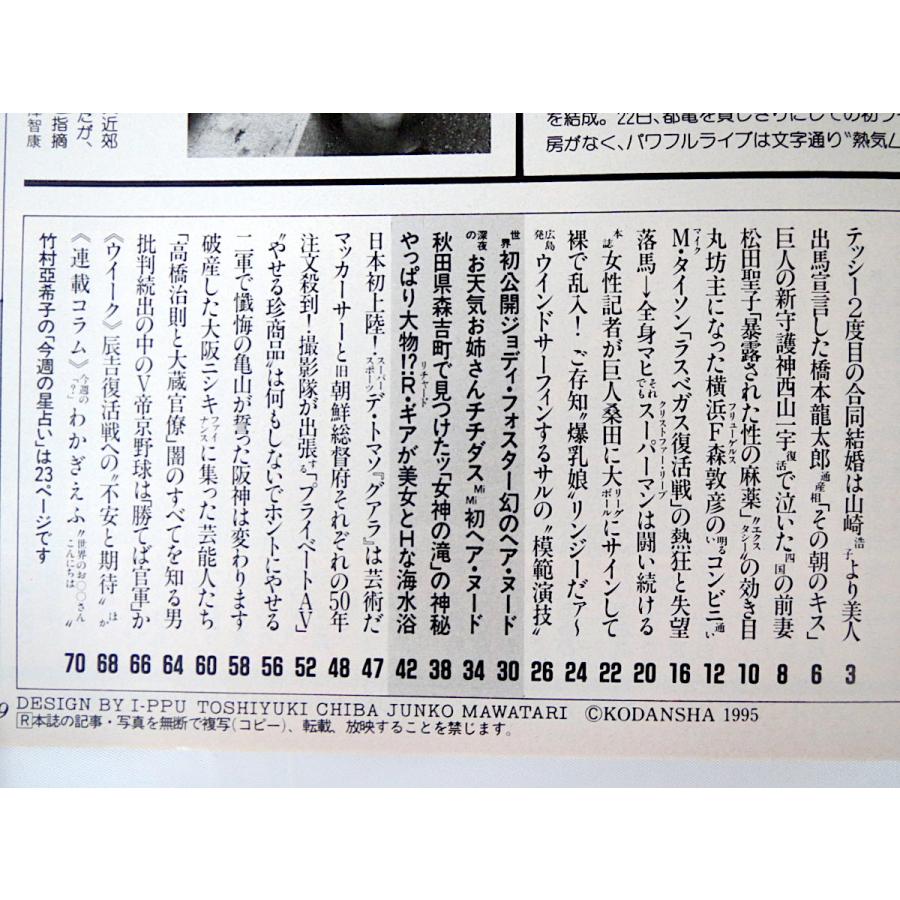 近郊
だが、
指摘
澤智康
を結成。22日、都電を貸しきりにしての初ラ
房がなく、パワフルライブは文字通り"熱気ム
テッシー2度目の合同結婚は山崎浩子より美人 3
出馬宣言した橋本龍太郎通産相「その朝のキス」 6
巨人の新守護神西山一宇復活で泣いた四国の前妻 8
松田聖子「暴露された性の麻薬」"エクスタシー"の効き目 10
丸坊主になった横浜Fフリューゲルス森敦彦の明るいコンビニ通い 12
マイクM・タイソン「ラスベガス復活戦」の熱狂と失望 16
落馬―全身マヒそれでもクリストファー・リーブスーパーマンは闘い続ける 20
本誌女性記者が巨人桑田に大リーグボールにサインして 22
裸で乱入!ご存知"爆乳娘"リンジーだァ〜 24
広島発ウインドサーフィンするサルの"模範演技" 26
世界初公開ジョディ・フォスター幻のヘア・ヌード 30
深夜のお天気お姉さんチチダスMiMi初ヘア・ヌード 34
秋田県森吉町で見つけたッ「女神の滝」の神秘 38
やっぱり大物!?リチャードR・ギアが美女とHな海水浴 42
日本初上陸!スーパースポーツデ・トマソ『グアラ』は芸術だ 47
マッカーサーと旧朝鮮総督府それぞれの50年 48
注文殺到!撮影隊が出張する「プライベートAV」 52
"やせる珍商品"は何もしないでホントにやせる 56
二軍で懺悔の亀山が誓った阪神は変わります 58
破産した大阪ニシキファイナンスに集った芸能人たち 60
「高橋治則と大蔵官僚」闇のすべてを知る男 64
批判続出の中のV帝京野球は「勝てば官軍」か 66
《ウイーク》辰吉復活戦への"不安と期待"ほか 68
《連載コラム》今週の「?」わかぎえふ"世界のお〇〇さんこんにちは" 70
竹村亞希子の「今週の星占い」は23ページです
9
DESIGN BY I-PPU TOSHIYUKI CHIBA JUNKO MAWATARI ©KODANSHA 1995
R本誌の記事・写真を無断で複写(コピー)、転載、放映することを禁じます。